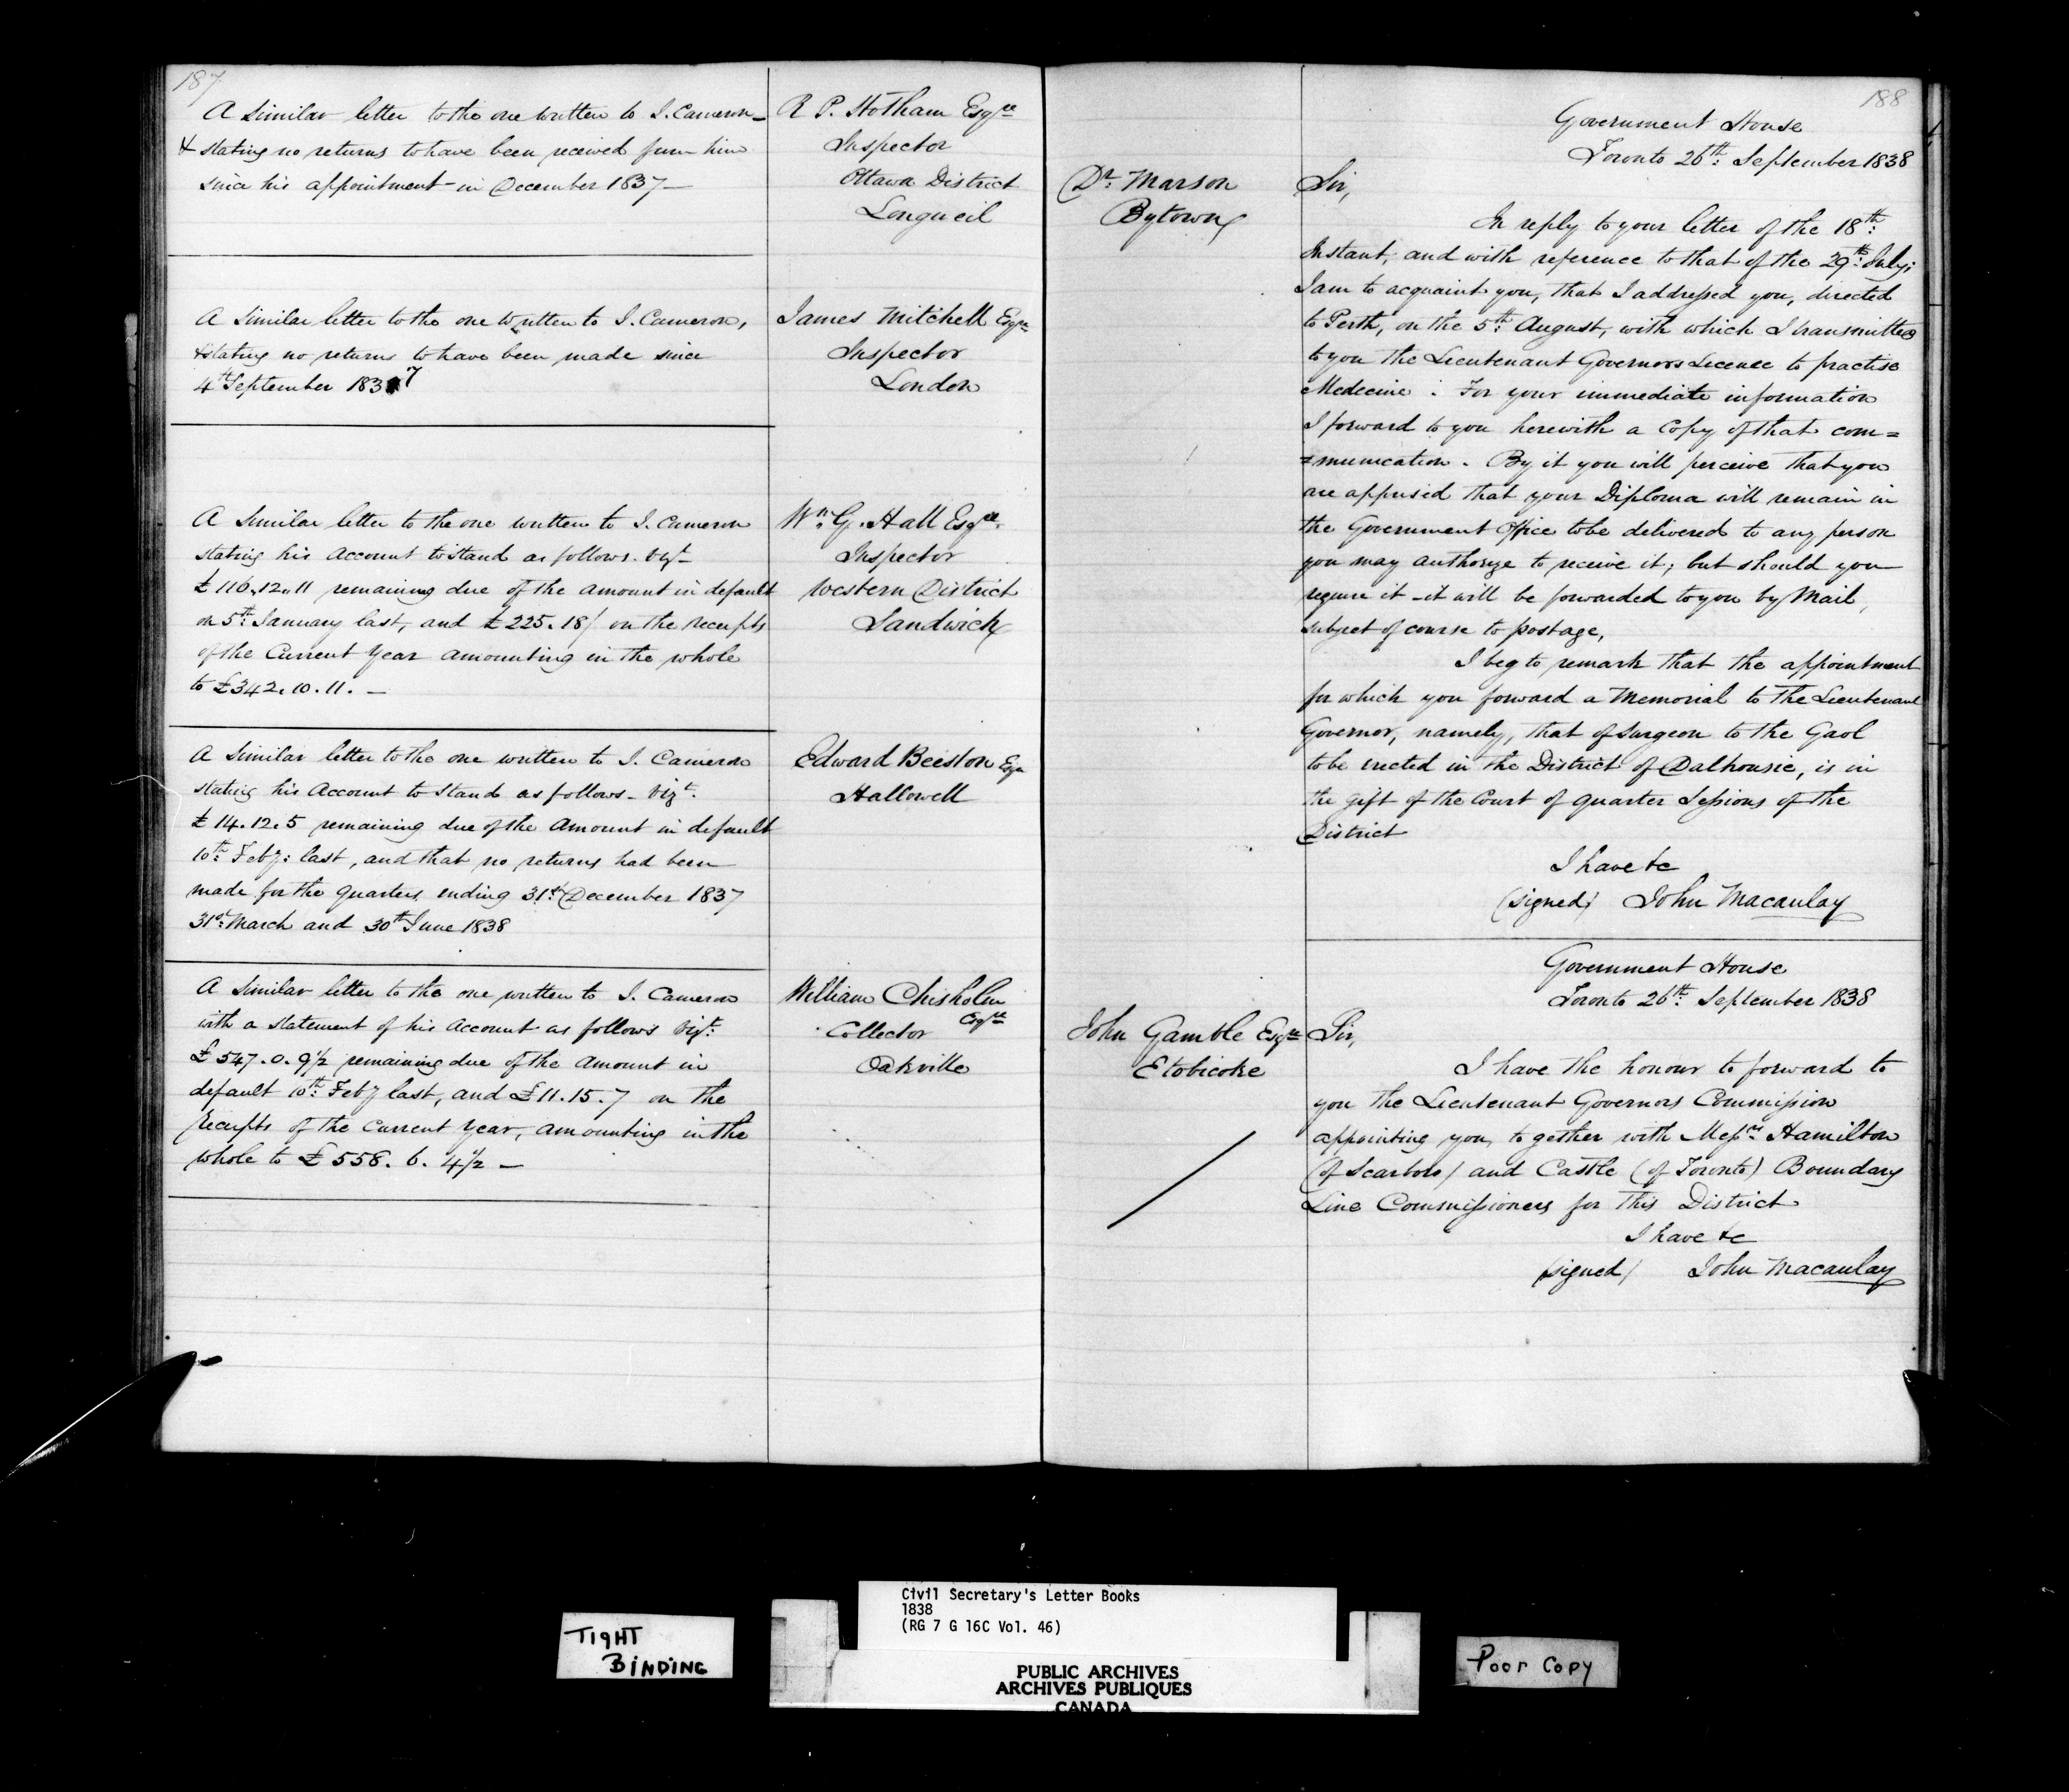 187
A Similar letter to the one written to J. Cameron –
& stating no returns to have been received from him
since his appointment in December 1837 –
R P. Hotham Esqre
Inspector
Ottawa District
Longueil
A Similar letter to the one written to J. Cameron,
& stating no returns to have been made since
4th September 1837
James Mitchell Esqre
Inspector
London
A Similar letter to the one written to J. Cameron
stating his Account to stand as follows. Vizt
£116.12.11 remaining due of the amount in default
on 5th January last, and £225.18/ on the receipts
of the Current Year amounting in the whole
to £342.10.11. –
Wm: G. Hall Esqre.
Inspector
Western District
Sandwich
A Similar letter to the one written to J. Cameron
stating his Account to stand as follows – Vizt.
£14.12.5 remaining due of the Amount in default
10th: Feby: last, and that no returns had been
made for the Quarters ending 31st: December 1837
31st: March and 30th June 1838
Edward Beeston Esqr
Hallowell
A Similar letter to the one written to J. Cameron
with a statement of his Account as follows Vizt:
£547.0.9½ remaining due of the Amount in
default 10th: Feby last, and £11.15.7 on the
receipts of the Current Year, amounting in the
whole to £558.6.4½ –
William Chisholm
Esqre
Collector
Oakville
188
Government House
Toronto 26th: September 1838
Dr: Marson
Bytown
Sir,
In reply to your letter of the 18th:
Instant, and with reference to that of the 29th: July;
I am to acquaint you, that I addressed you, directed
to Perth, on the 5th: August, with which I transmitted
to you the Lieutenant Governors Licence to practise
Medecine : For your immediate information
I forward to you herewith a Copy of that com=
=munication. By it you will perceive that you
are apprised that your Diploma will remain in
the Government Office to be delivered to any person
you may authorize to receive it; but should you
require it – it will be forwarded to you by Mail,
subject of course to postage,
I beg to remark that the appointment
for which you forward a Memorial to the Lieutenant
Governor, namely, that of Surgeon to the Gaol
to be erected in the District of Dalhousie, is in
the gift of the Court of Quarter Sessions of the
District
I have &c
(signed) John Macaulay
Government House
Toronto 26th: September 1838
John Gamble Esqre
Etobicoke
Sir,
I have the honour to forward to
you the Lieutenant Governors Commission
appointing you, together with Messrs Hamilton
(of Scarboro) and Castle (of Toronto) Boundary
Line Commissioners for this District
I have &c
(signed) John Macaulay
TIGHT
BINDING
Civil Secretary's Letter Books
1838
(RG 7 G 16C Vol. 46)
PUBLIC ARCHIVES
ARCHIVES PUBLIQUES
CANADA
Poor Copy